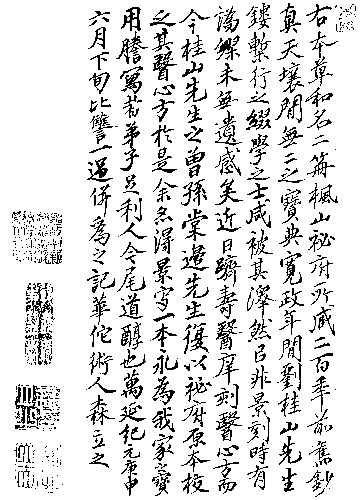 右本草和名二冊楓山祕府所臧二百年前舊鈔
真天壤間無二之寶典寬政年間劉桂山先生
鏤槧行之綴學之士咸被其澤然已非景刻時有
譌未無遺感矣近日躋壽醫庠刻醫心方而
今桂山先生之曾孫棠邊先生復以祕府原本校
之其醫心方於是余亦得景寫一本永為我家之寶
用謄寫者弟子足利人今尾道醇也萬延紀元庚申
六月下旬比讐一過併為之記華佗術人森立之